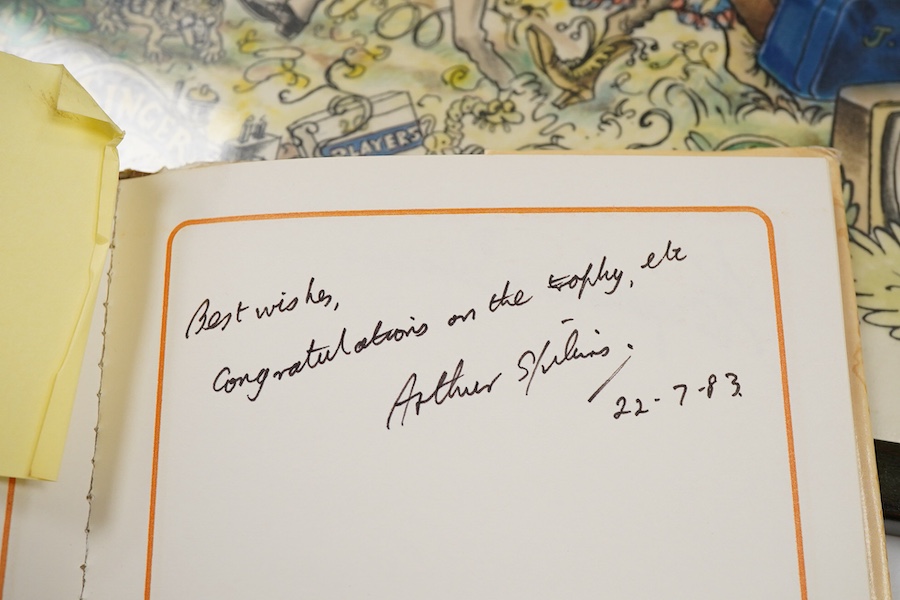 J.
INGER
PLAYERS
Best wishes,
Congratulations on the trophy, etc
Arthur
22-7-83.